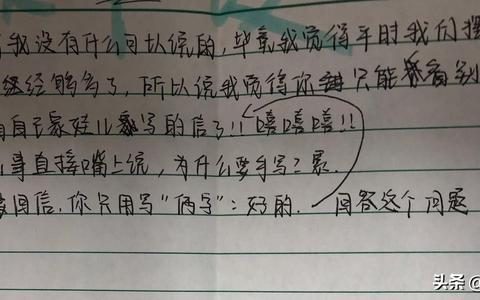 我没有什么可以说的，毕竟我觉得平时我们摆
经够多了，所以说我觉得你只能看到
自己家娃儿写的信了!! 嘻嘻嘻!!
事直接嘴上说，为什么要手写？累.
回信，你只用写"俩字"：好的. 回答这个问题
头条 @